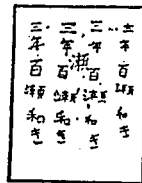 三年百瀬和き
三年百瀬和き
瀬
三年百瀬和き
三年百瀬和き